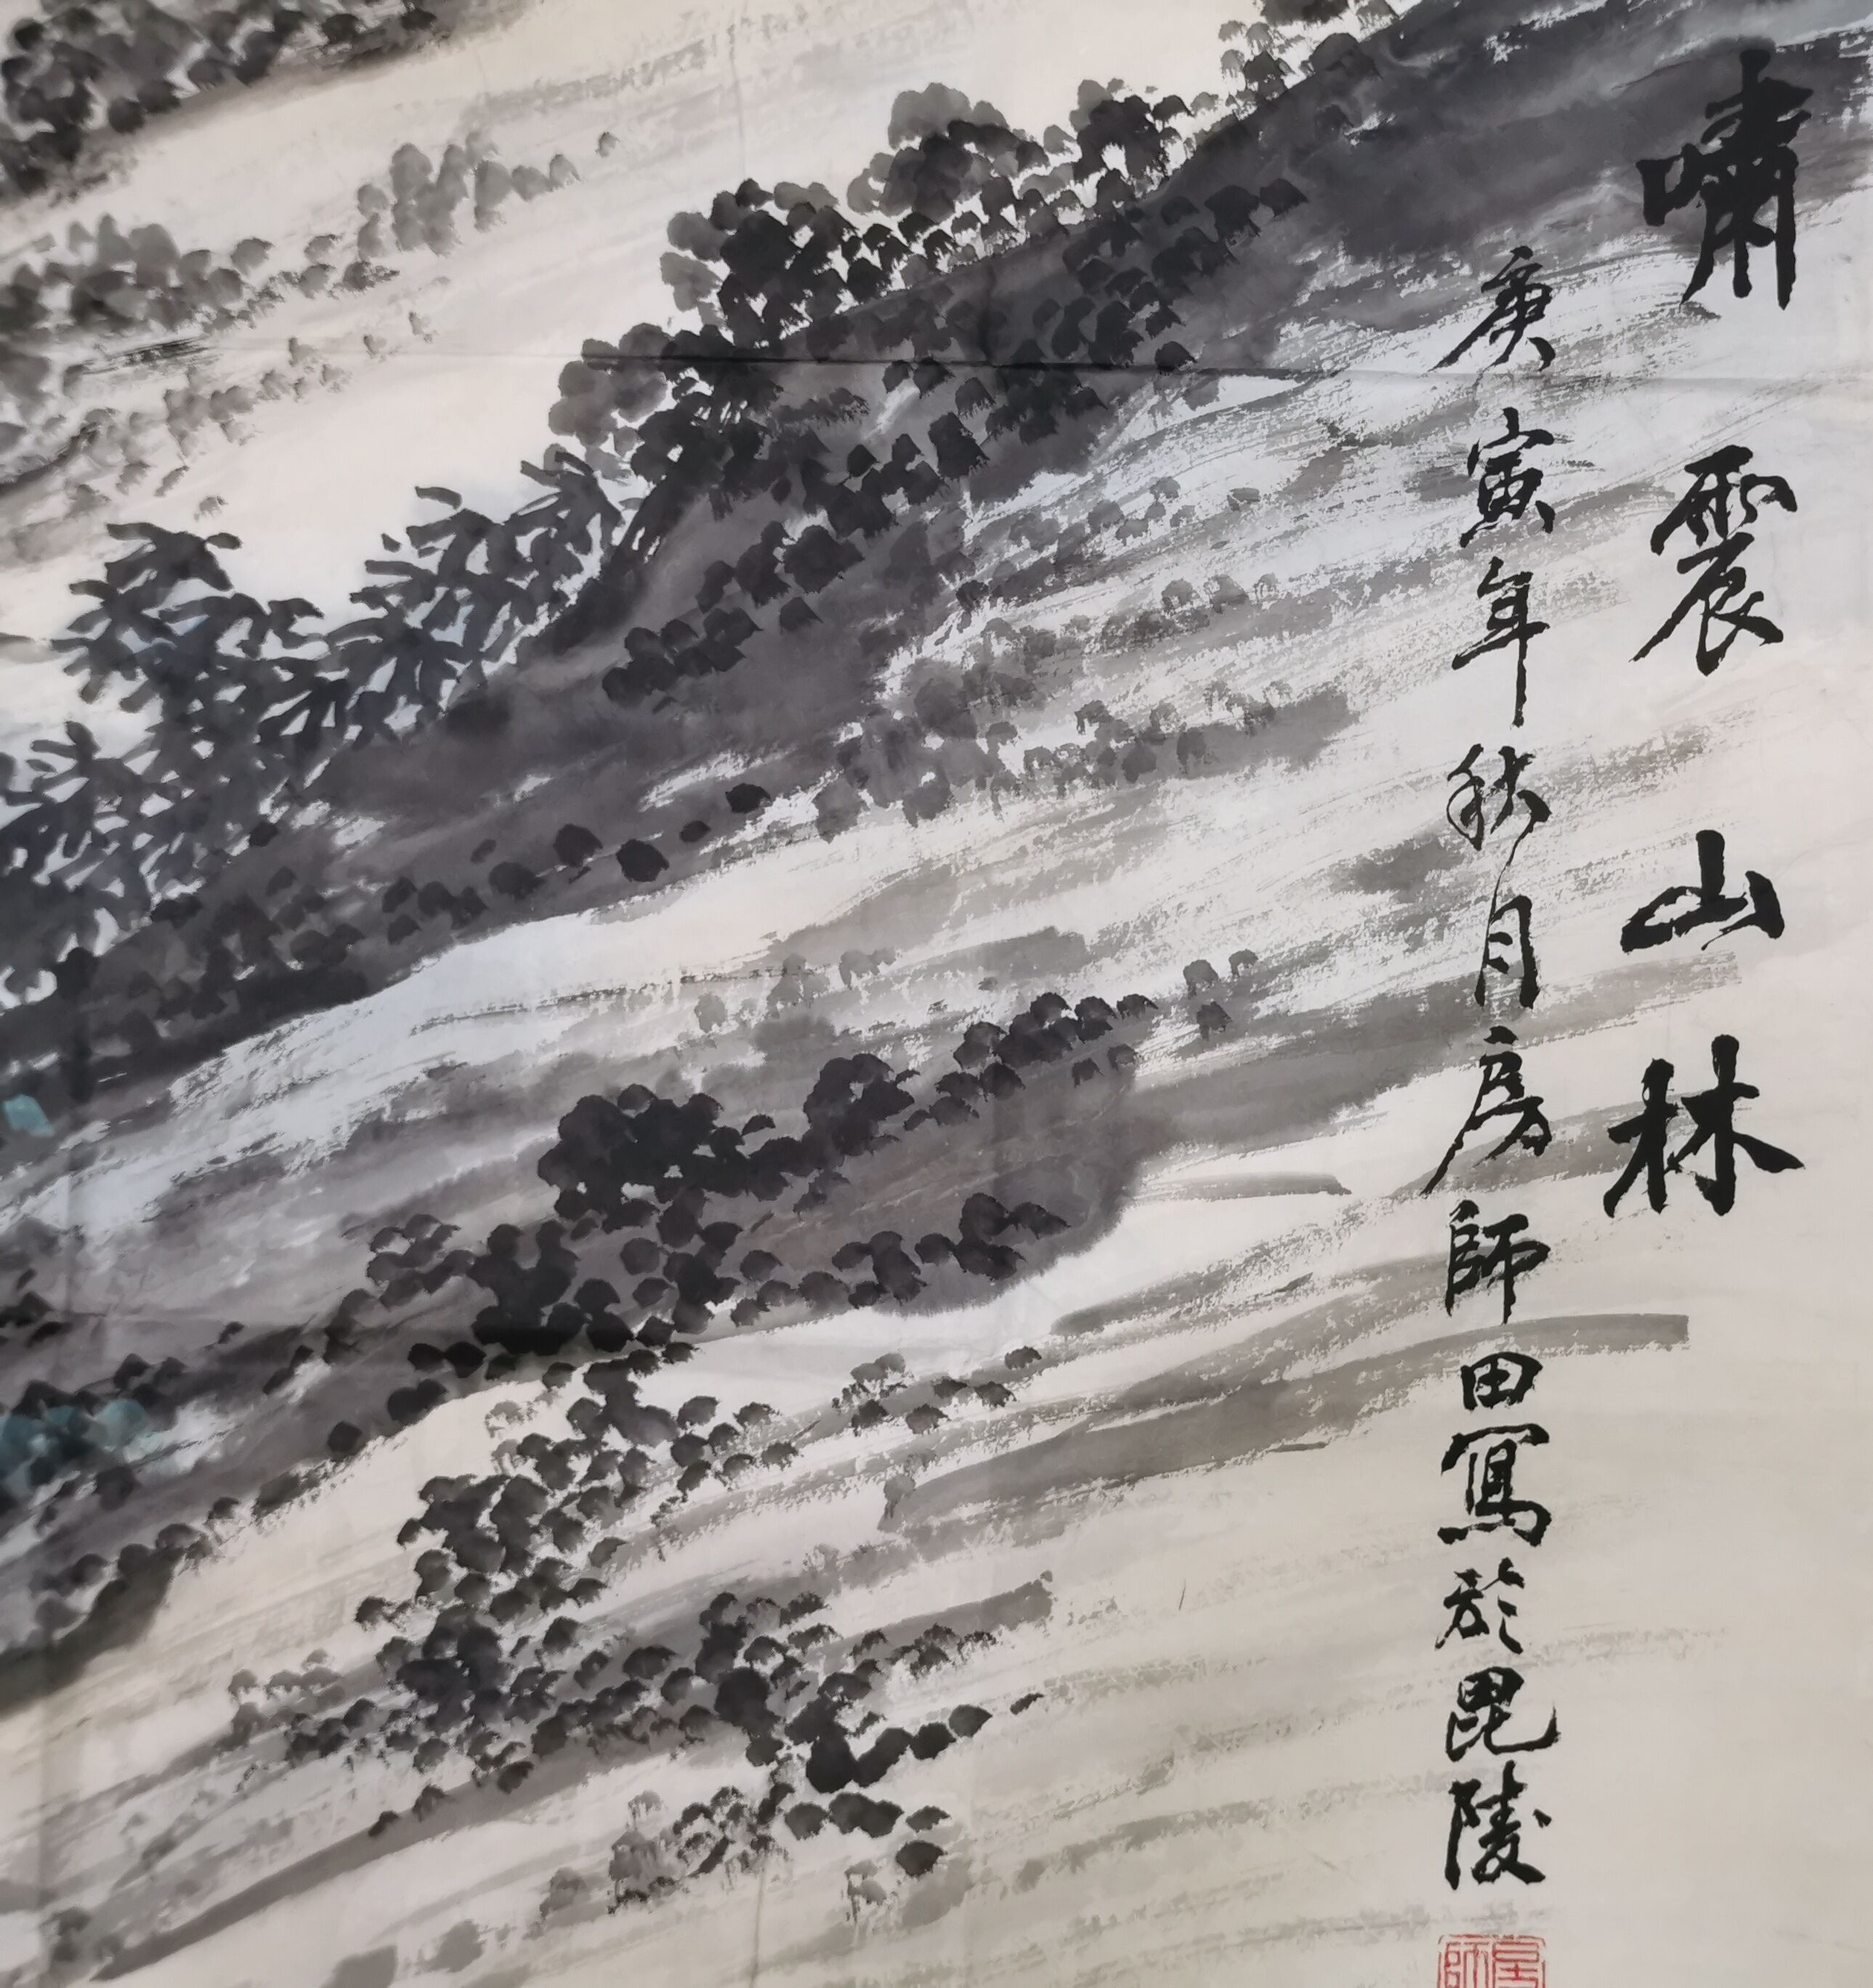 嘯震山林
庚寅年秋月房師田寫於毘陵